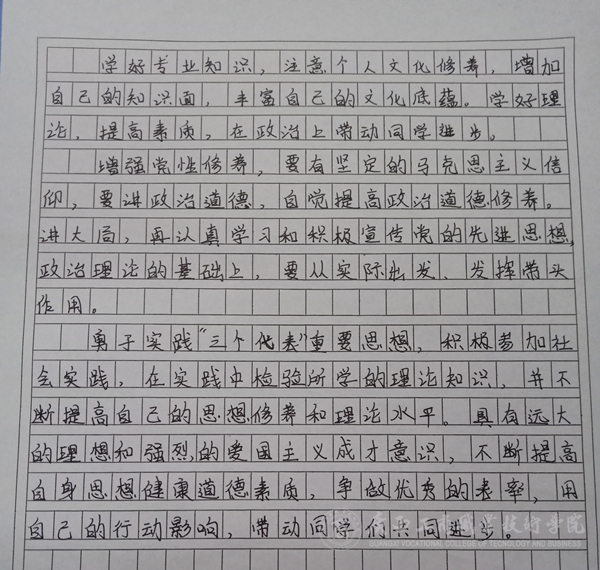 学好专业知识，注意个人文化修养，增加
自己的知识面，丰富自己的文化底蕴。学好理
论，提高素质，在政治上带动同学进步。
增强党性修养，要有坚定的马克思主义信
仰，要讲政治道德，自觉提高政治道德修养。
讲大局，再认真学习和积极宣传党的先进思想，
政治理论的基础上，要从实际出发、发挥带头
作用。
勇于实践“三个代表”重要思想，积极参加社
会实践，在实践中检验所学的理论知识，并不
断提高自己的思想修养和理论水平。具有远大
的理想和强烈的爱国主义成才意识，不断提高
自身思想健康道德素质，争做优秀的表率，用
自己的行动影响，带动同学们共同进步。